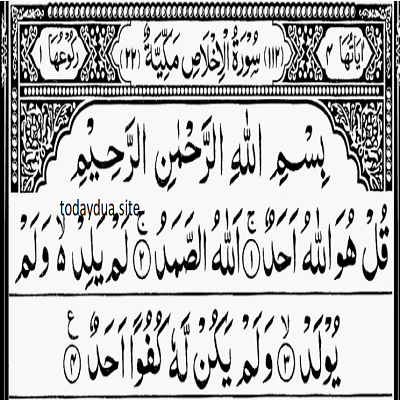 اٰيَاتُهَا ۴ (۱۱۲) سُوْرَةُ الْاِخْلَاصِ مَكِّيَّةٌ (۲۲) رُكُوْعُهَا ۱
بِسْمِ اللّٰهِ الرَّحْمٰنِ الرَّحِيْمِ
todaydua.site
قُلْ هُوَ اللّٰهُ اَحَدٌ ۚ ﴿۱﴾ اَللّٰهُ الصَّمَدُ ۚ ﴿۲﴾ لَمْ يَلِدْ ۙ۵ وَلَمْ
يُوْلَدْ ۙ ﴿۳﴾ وَلَمْ يَكُنْ لَّهٗ كُفُوًا اَحَدٌ ﴿۴﴾ ع